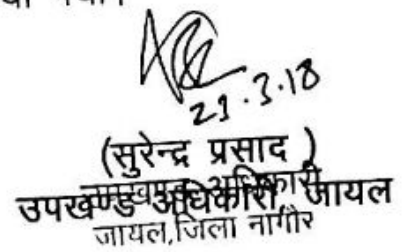 21.3.18
(सुरेन्द्र प्रसाद )
उपखण्ड अधिकारी, जायल
उपखण्ड अधिकारी
जायल,जिला नागौर